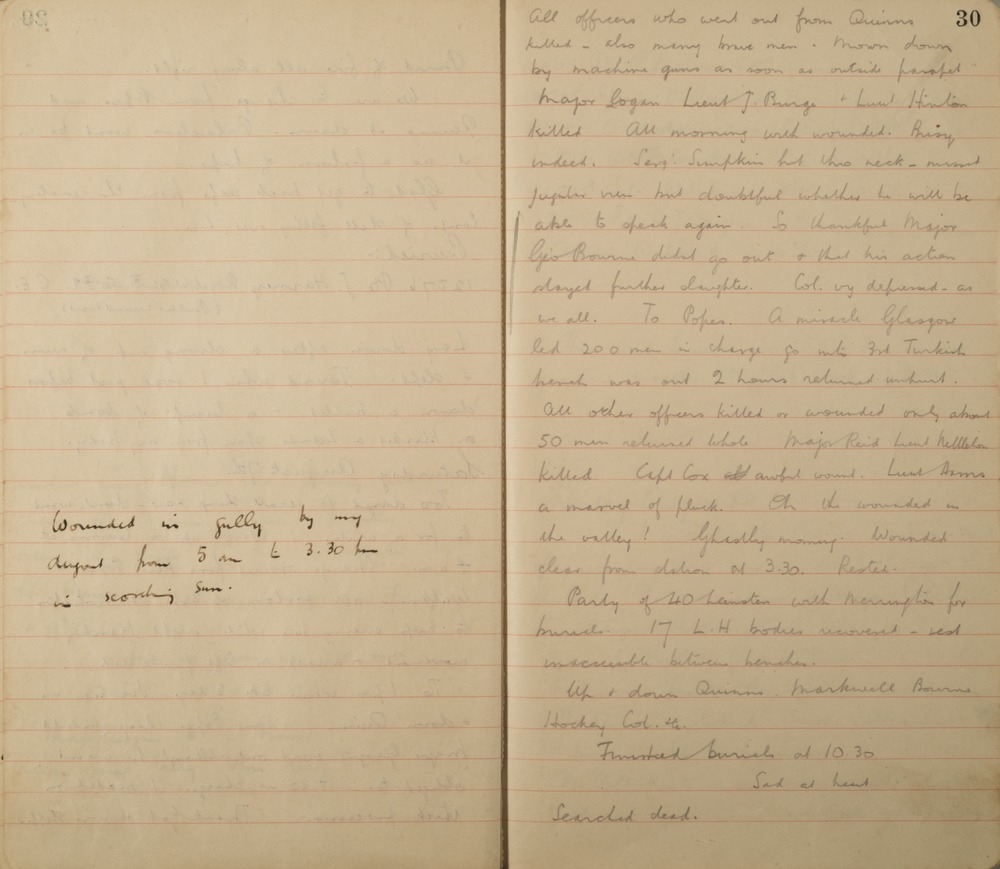 Wounded in gully by my
dugout from 5 am to 3.30 pm
in scorching sun.
30
All officers who went out from Quinns
killed - also many brave men. Mown down
by machine guns as soon as outside parapet
Major Logan Lieut J. Burge + Lieut Hinton
killed All morning with wounded. Busy
indeed. Serg: Simpkin hit thro neck - missed
jugular vein but doubtful whether he will be
able to speak again. So thankful Major
Geo Bourne didnt go out + that his action
stayed further slaughter. Col. vy depressed - as
we all. To Popes. A miracle Glasgow
led 200 men in charge go into 3rd Turkish
trench was out 2 hours returned unhurt.
All other officers killed or wounded only about
50 men returned whole Major Reid Lieut Nettleton
killed Capt Cox awful wound. Lieut
a marvel of pluck. Oh the wounded in
the valley! Ghastly morning. Wounded
clear from station at 3.30. Rested.
Party of 40 Leinsters with Merrington for
burials. 17 L.H bodies recovered - rest
inaccessible between trenches.
Up + down Quinns. Markwell Bourne
Hockey Col. etc.
Finished burials at 10 30
Sad at heart
Searched dead.